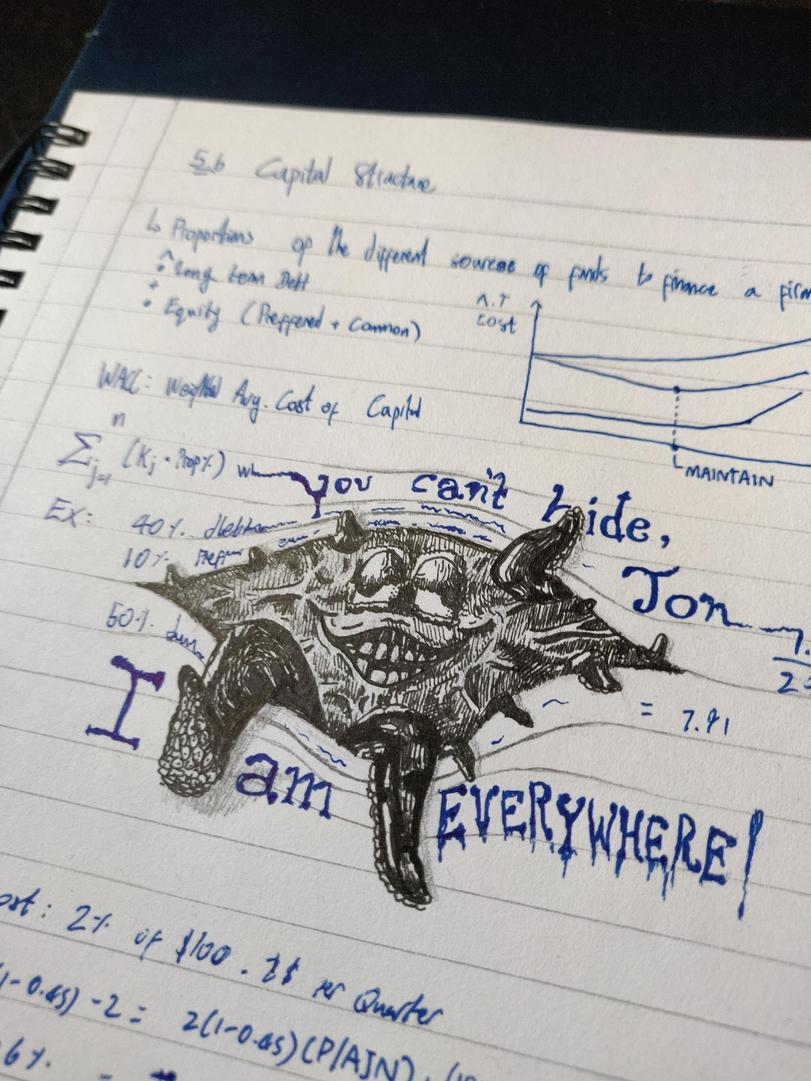 5.6 Capital Structure
↳ Proportions of the different sources of funds to finance a firm
• Long term Debt
+
• Equity (Preffered + Common)
A.T
cost
MAINTAIN
WACC: Weighted Avg. Cost of Capital
n
∑ (Kj · Prop%) wh
j=1
you can't hide,
Jon
Ex: 40% debt
10% Pref
50%
= 7.91
I am EVERYWHERE!
ost: 2% of $100. 2$ per Quarter
(1-0.45) -2 = 2(1-0.45)(P/A,I,N)
.6%